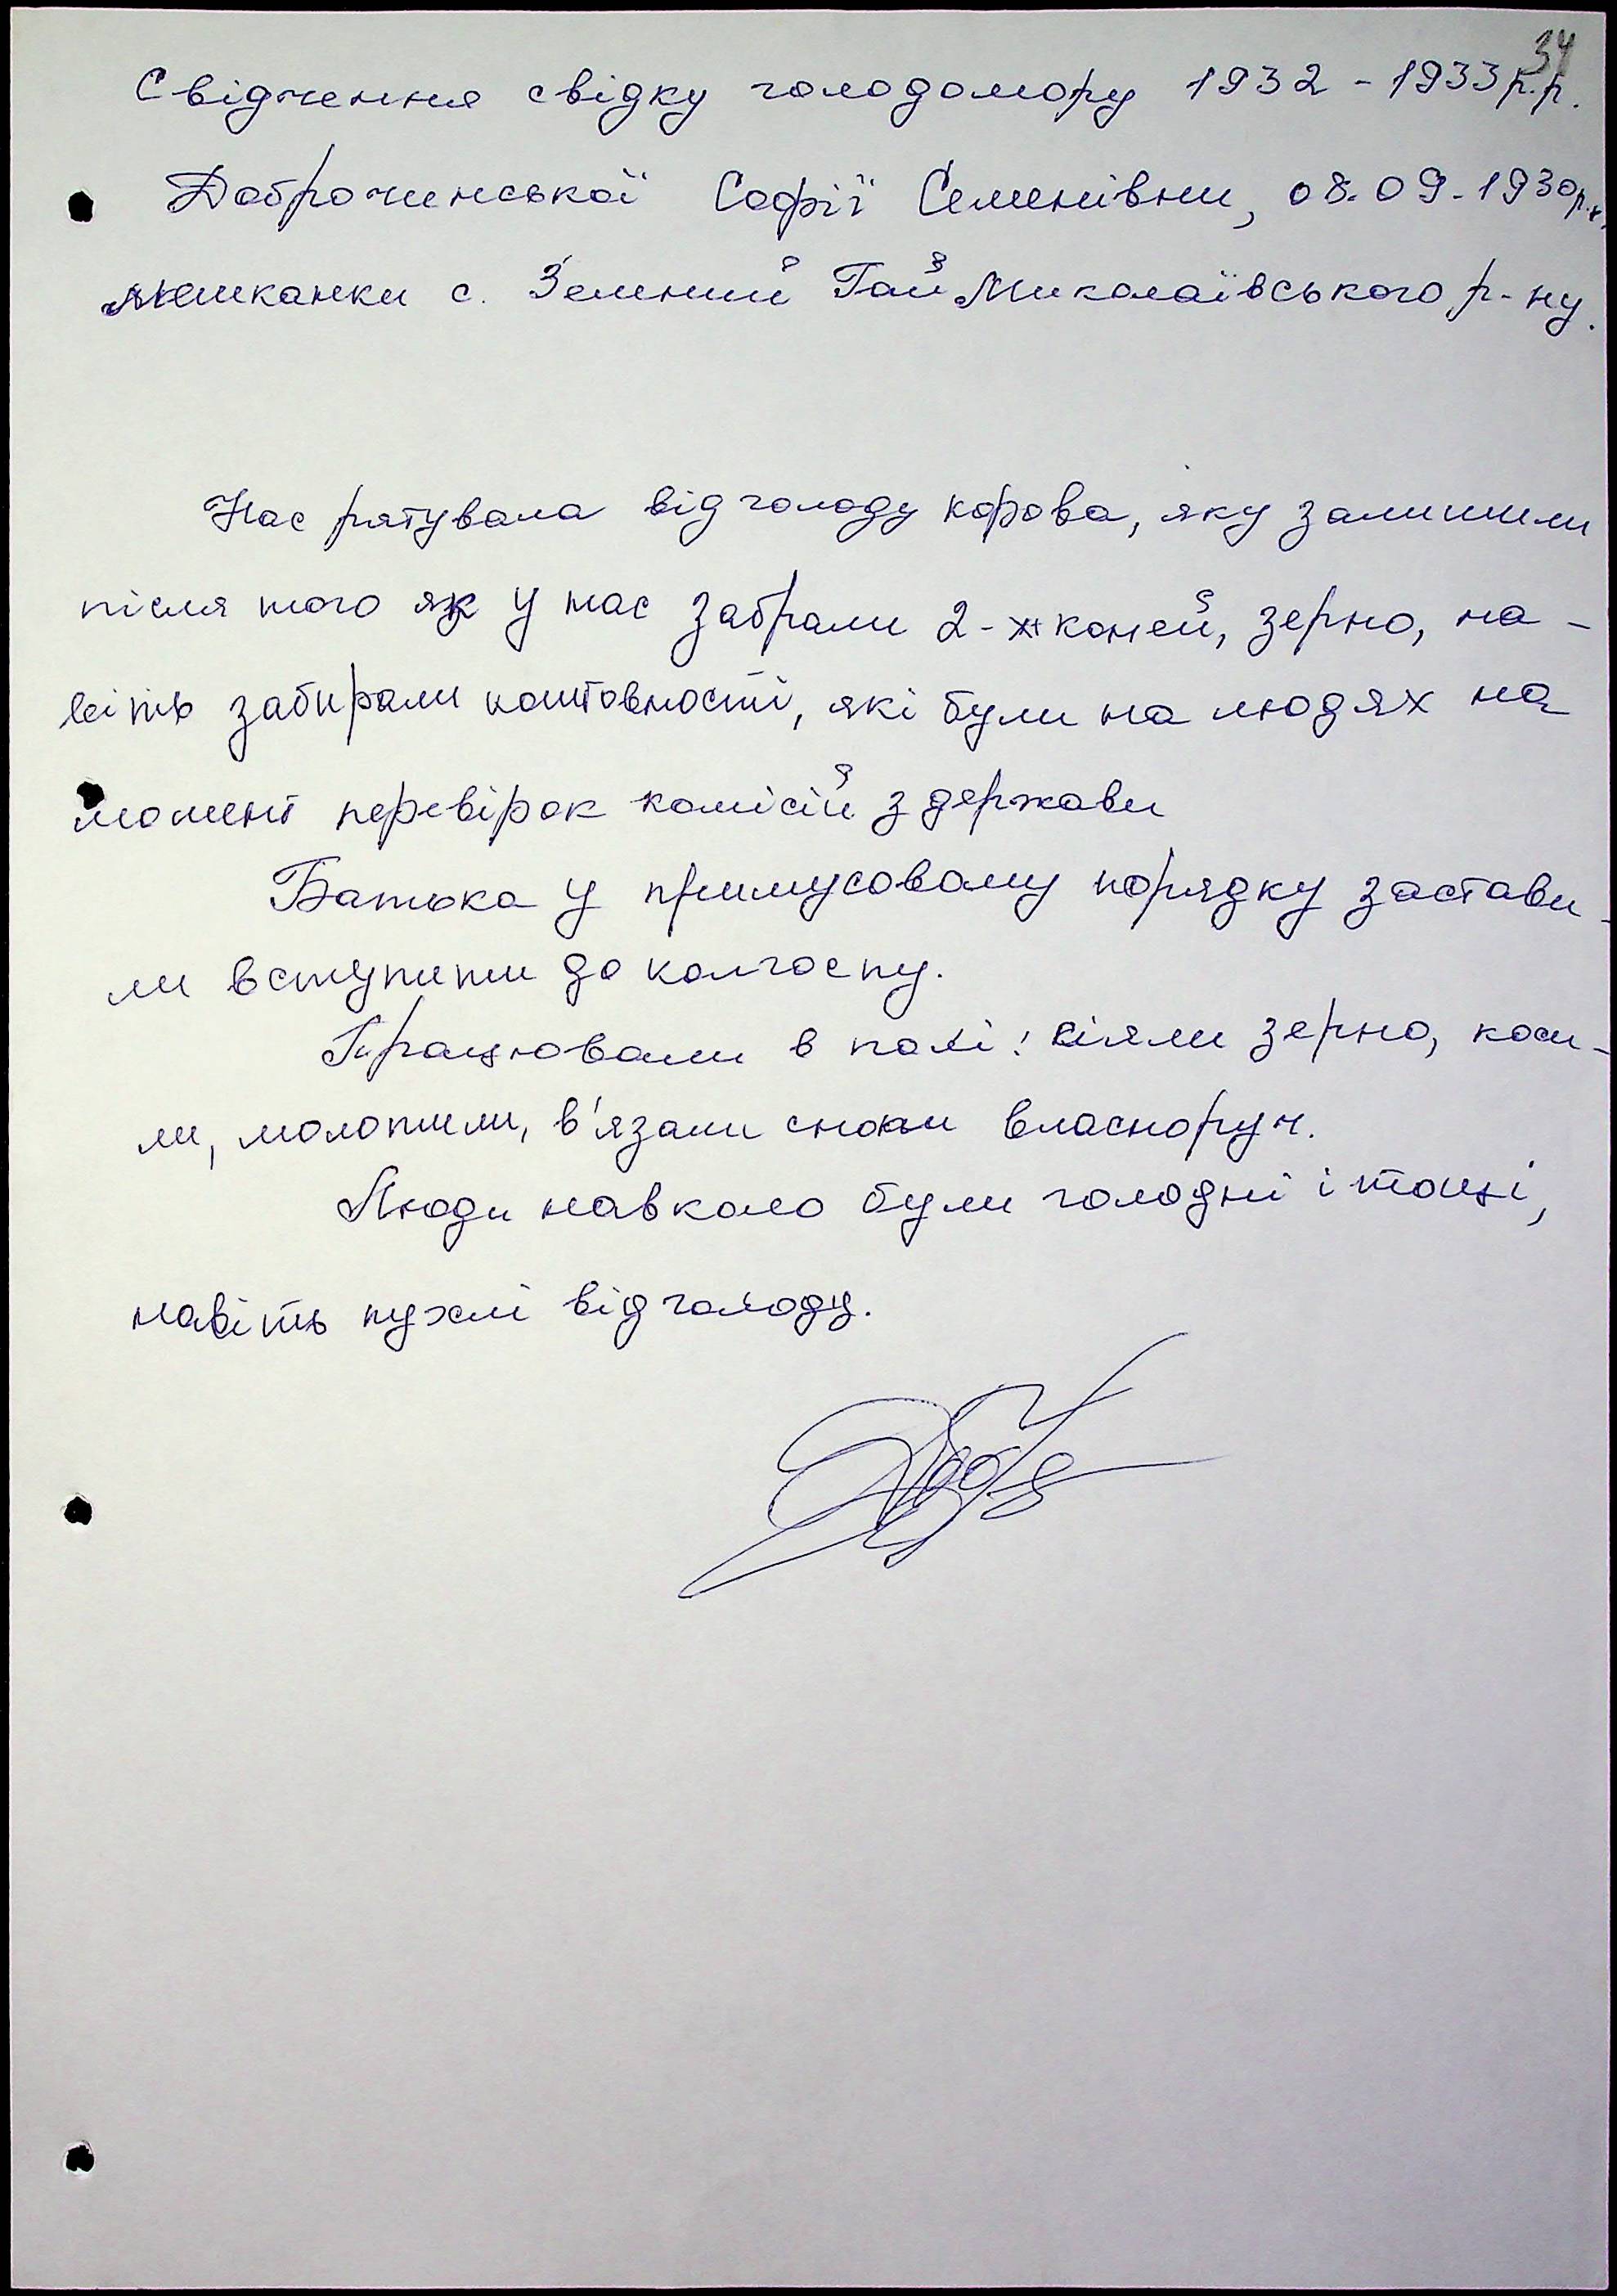 34
Свідчення свідку голодомору 1932 - 1933 р.р.
Доброчинської Софії Семенівни, 08.09.1930р.н.
мешканки с. Зелений Гай Миколаївського р-ну.
Нас рятувала від голоду корова, яку залишили
після того як у нас забрали 2-х коней, зерно, на-
віть забирали коштовності, які були на людях на
момент перевірок комісій з держави
Батька у примусовому порядку застави-
ли вступити до колгоспу.
Працювали в полі: сіяли зерно, коси-
ли, молотили, в'язали снопи власноруч.
Люди навколо були голодні і тощі,
навіть пухлі від голоду.